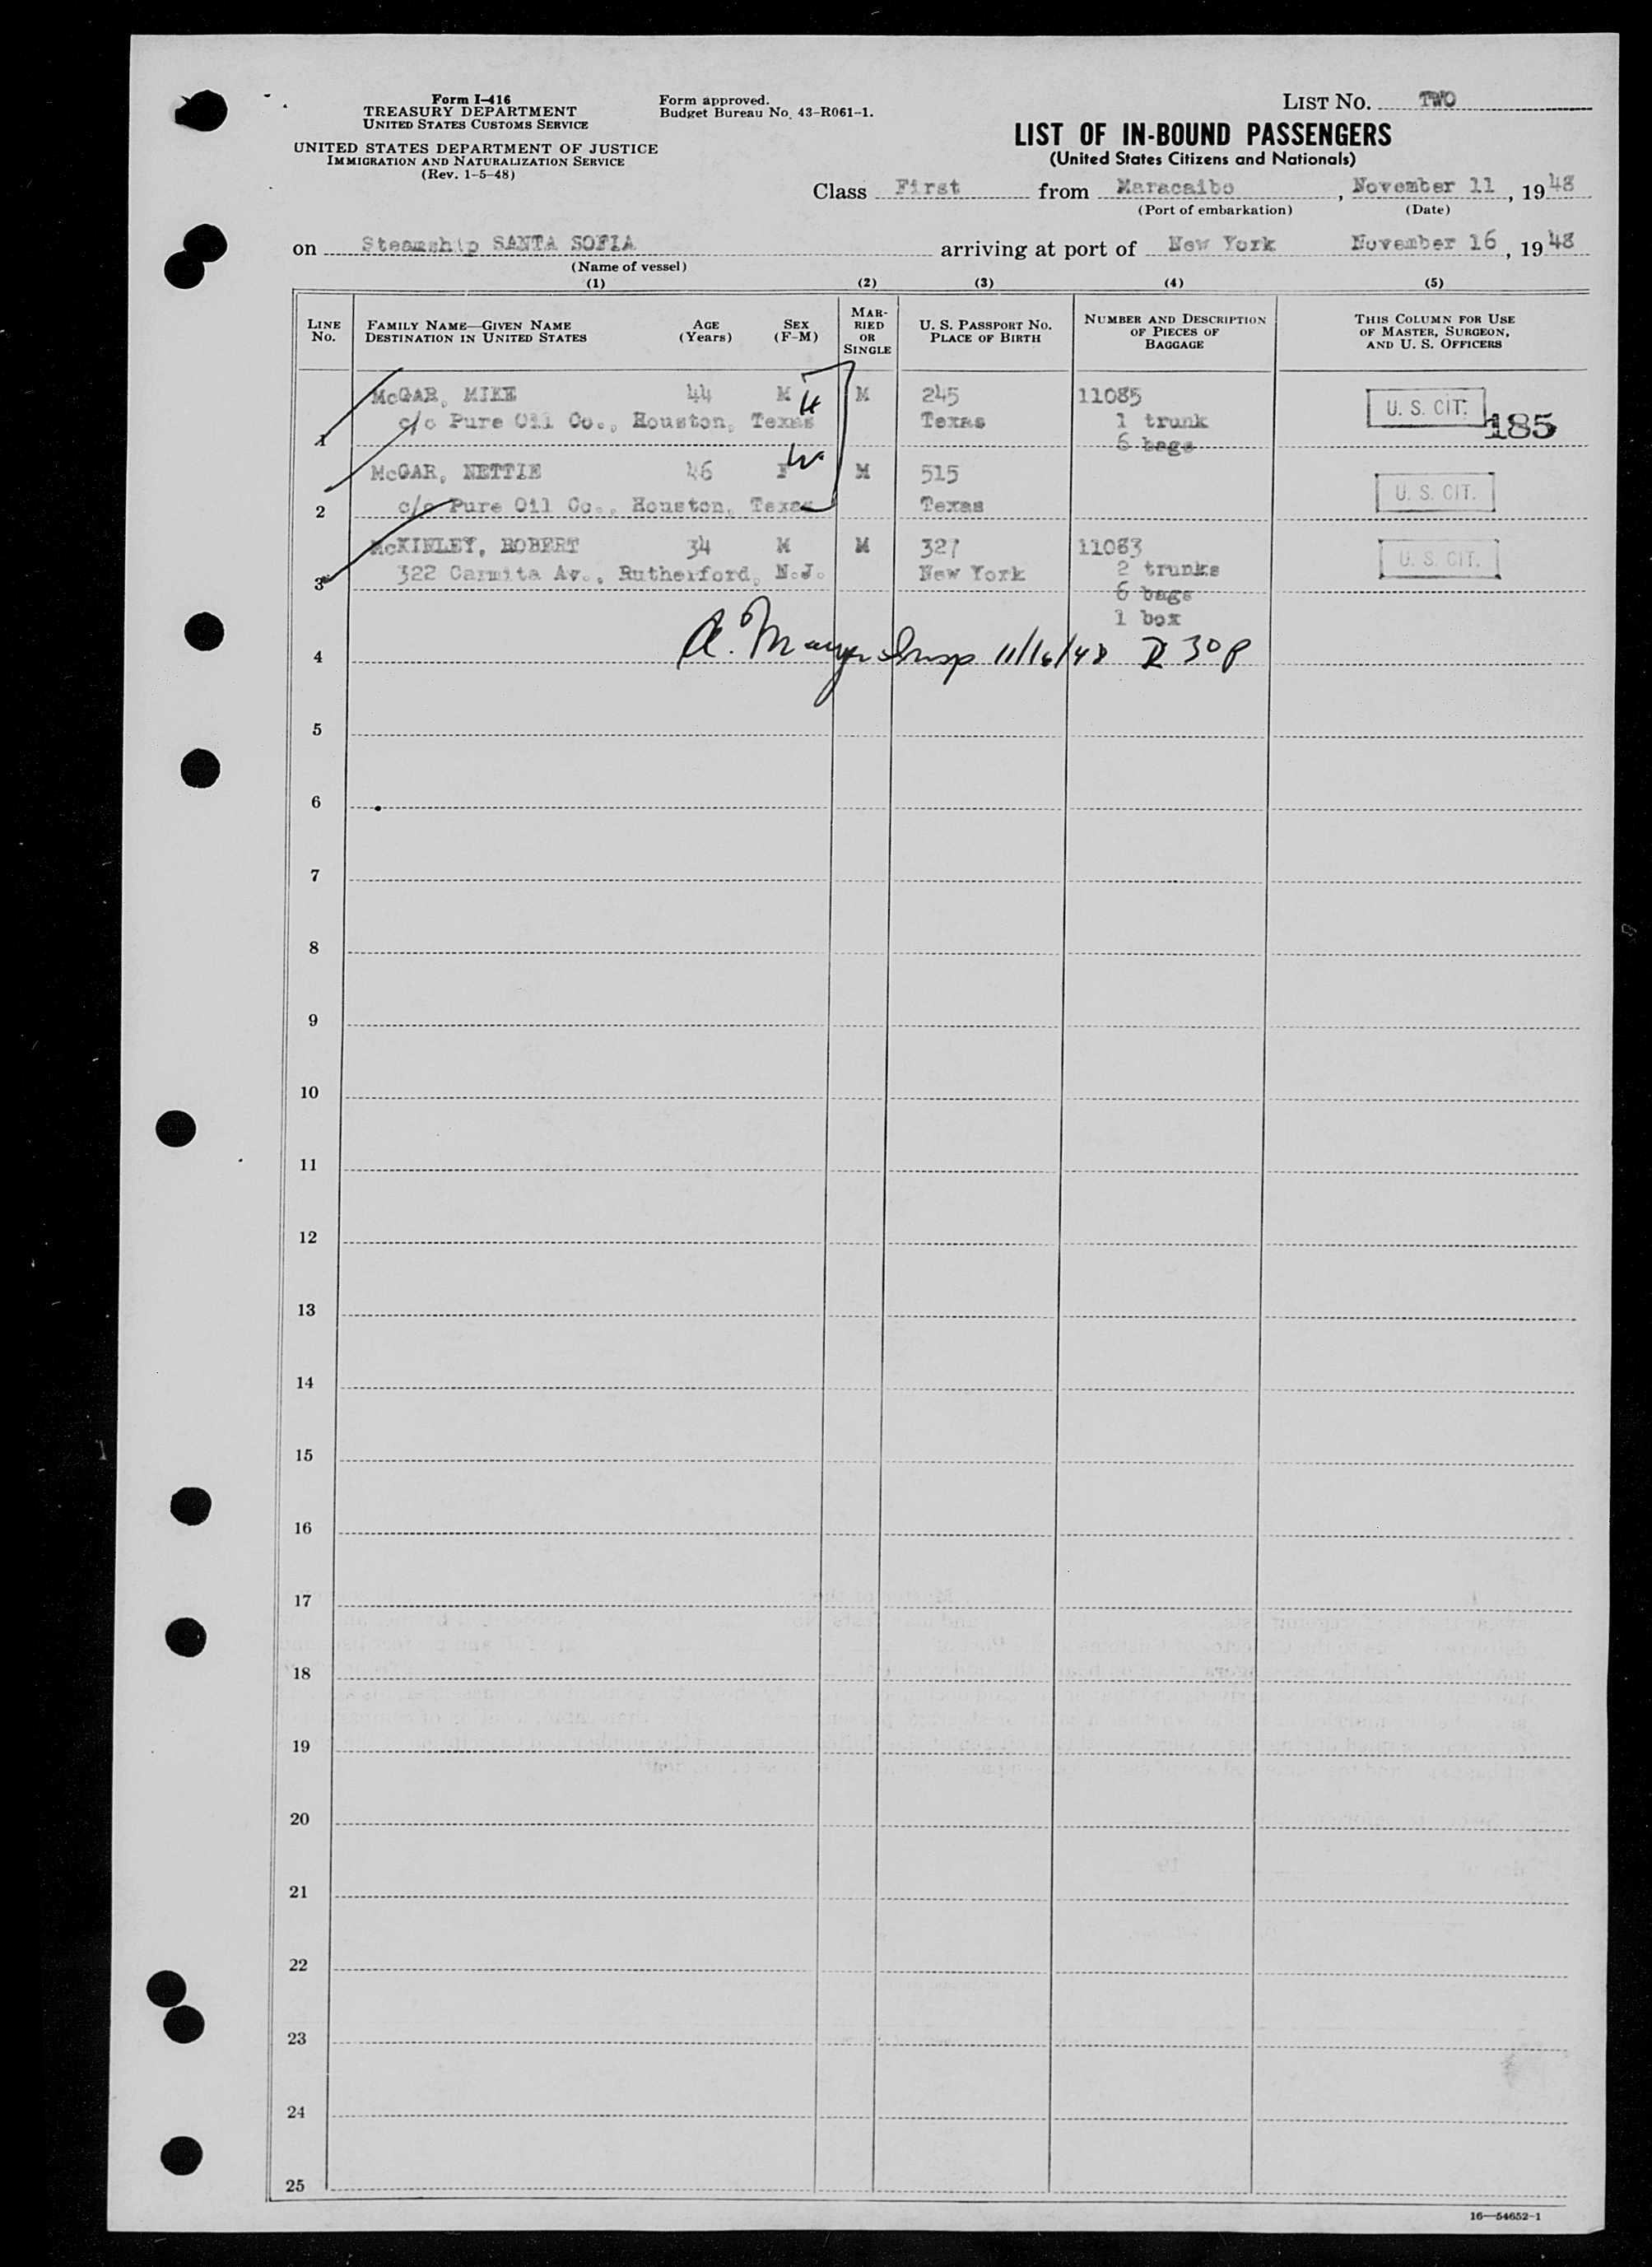 Form I-416
TREASURY DEPARTMENT
UNITED STATES CUSTOMS SERVICE
UNITED STATES DEPARTMENT OF JUSTICE
IMMIGRATION AND NATURALIZATION SERVICE
(Rev. 1-5-48)
Form approved.
Budget Bureau No. 43-R061-1.
LIST NO. TWO
LIST OF IN-BOUND PASSENGERS
(United States Citizens and Nationals)
Class First from Maracaibo, November 11, 1948
(Port of embarkation) (Date)
on Steamship SANTA SOFIA arriving at port of New York November 16, 1948
(Name of vessel)
(1) (2) (3) (4) (5)
LINE NO.
FAMILY NAME—GIVEN NAME
DESTINATION IN UNITED STATES
AGE
(Years)
SEX
(F-M)
MAR-
RIED
OR
SINGLE
U. S. PASSPORT NO.
PLACE OF BIRTH
NUMBER AND DESCRIPTION
OF PIECES OF
BAGGAGE
THIS COLUMN FOR USE
OF MASTER, SURGEON,
AND U. S. OFFICERS
McGAR, MIKE 44 M H M 245 11085 U. S. CIT. 185
c/o Pure Oil Co., Houston, Texas Texas 1 trunk
1 6 bags
McGAR, NETTIE 46 F W M 515 U. S. CIT.
2 c/o Pure Oil Co., Houston, Texas Texas
McKINLEY, ROBERT 34 M M 327 11083 U. S. CIT.
3 322 Carmita Av., Rutherford, N.J. New York 2 trunks
6 bags
1 box
4 Insp 11/16/48 30P
5
6
7
8
9
10
11
12
13
14
15
16
17
18
19
20
21
22
23
24
25
16—54652-1